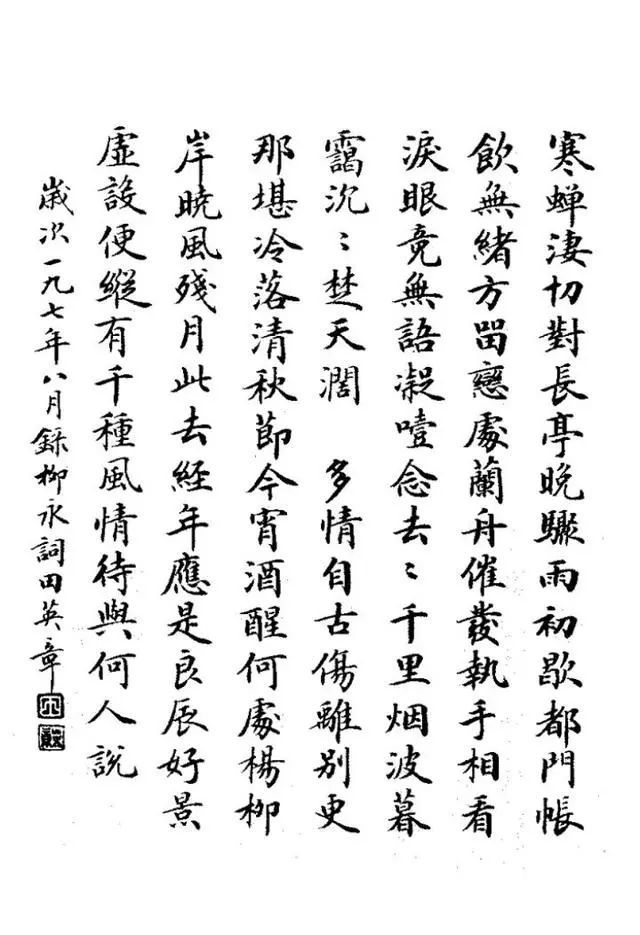 寒蟬淒切對長亭晚驟雨初歇都門帳
飲無緒方留戀處蘭舟催發執手相看
淚眼竟無語凝噎念去〻千里烟波暮
靄沉〻楚天濶 多情自古傷離別更
那堪冷落清秋節今宵酒醒何處楊柳
岸曉風殘月此去經年應是良辰好景
虛設便縱有千種風情待與何人說
歲次一九七年八月錄柳永詞田英章